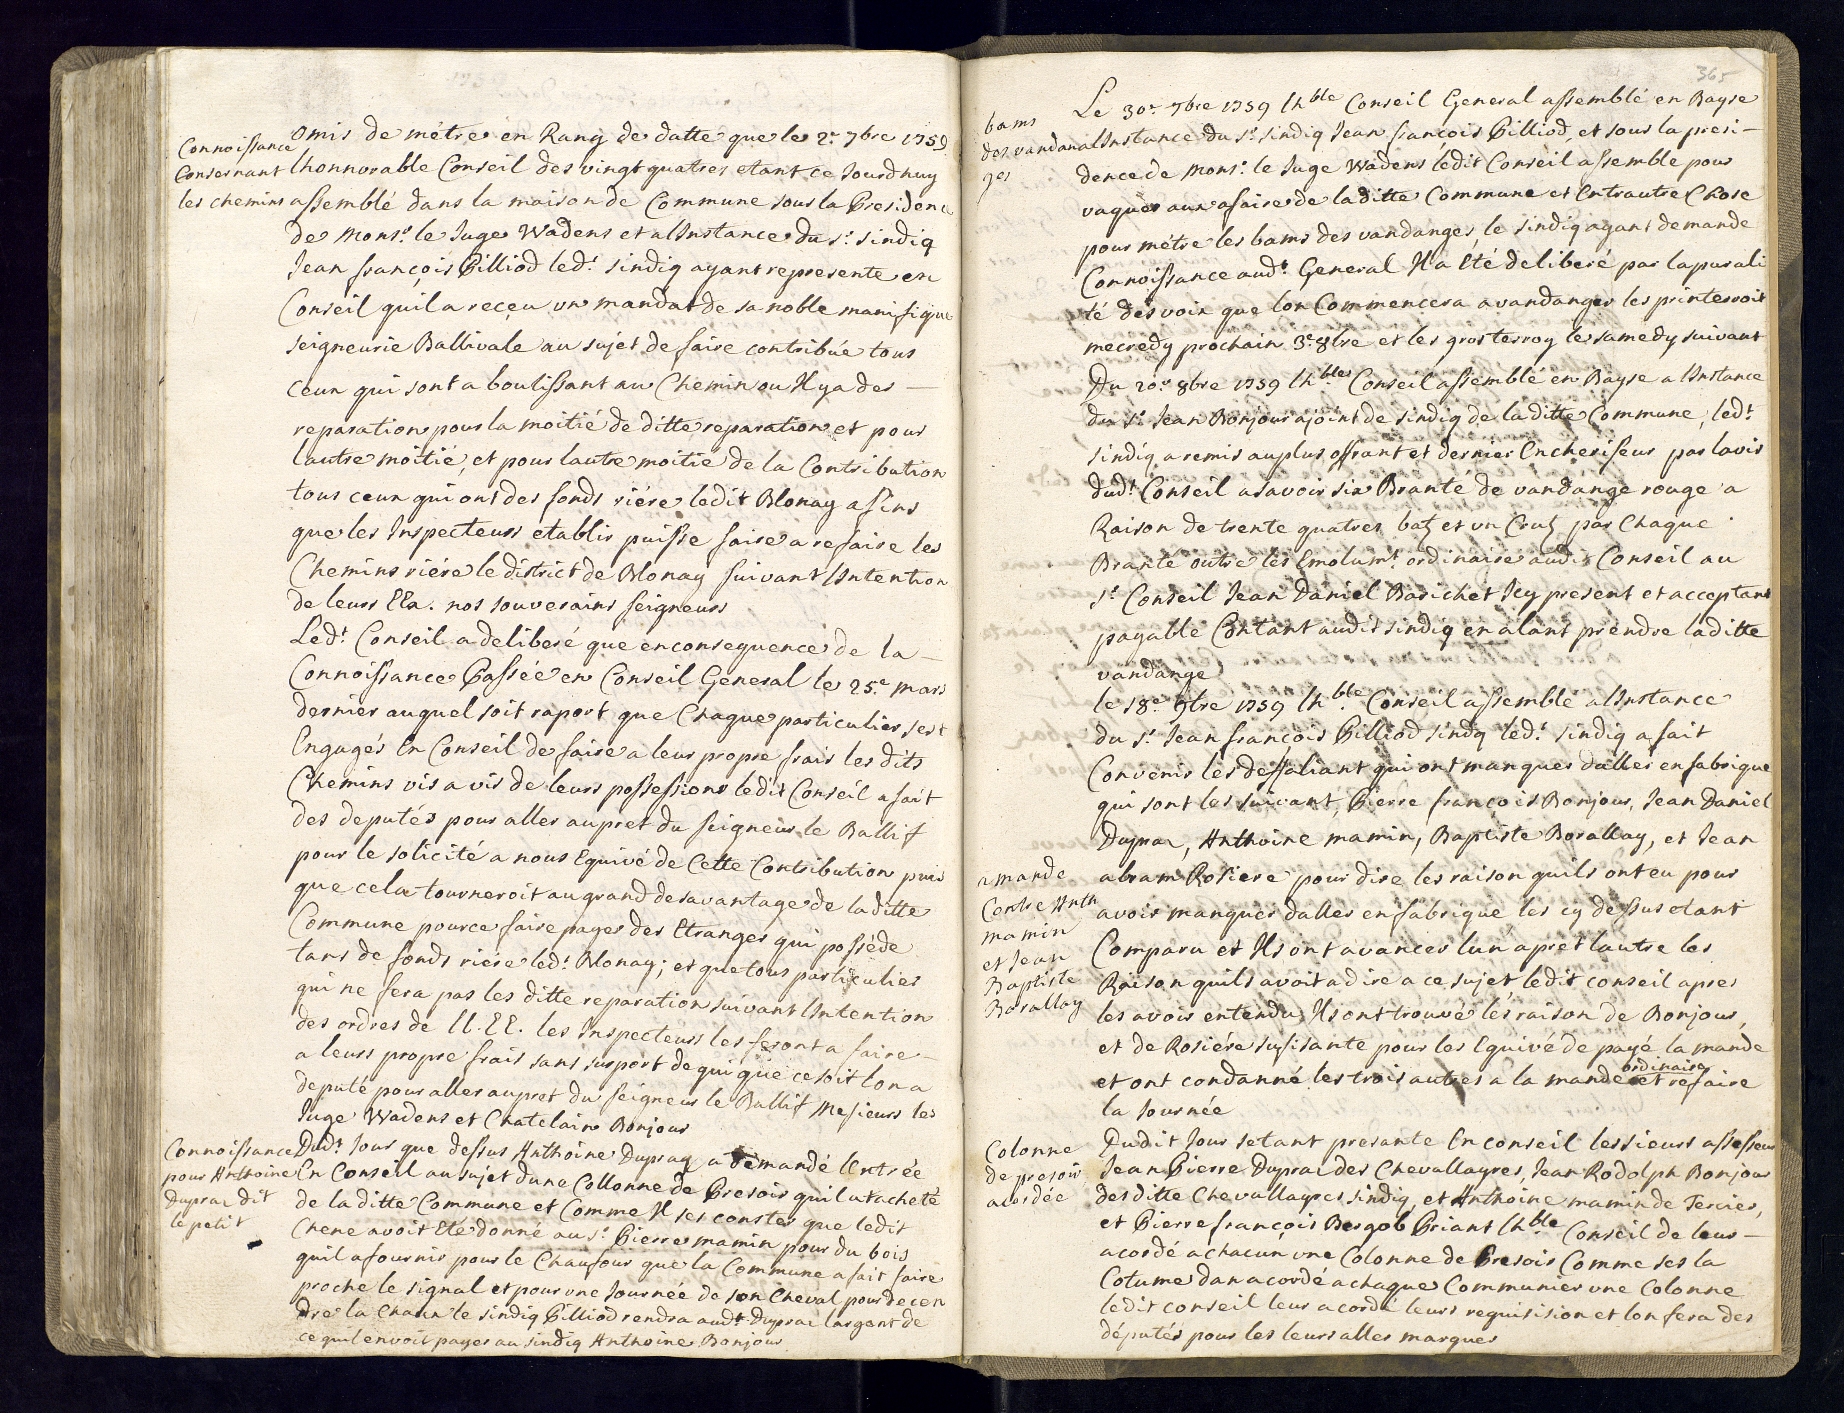 Connoissance
Consernant
les chemins
Omis de métre en Rang de datte que le 2.e 7bre 1759
lhonnorable Conseil des vingt quatres etant ce Jourdhuy
assemblé dans la maison de Commune sous la Presidence
de Monsr. le Juge Wadens et a lInstance du sr. sindiq
Jean françois Gilliod ledt. sindiq ayant represente en
Conseil quil a reçeu un mandat de sa noble manifique
seigneurie Ballivale au sujet de faire contribüe tous
ceux qui sont a boutissant au Chemin ou Il ya des —
reparation pour la moitié de ditte reparation et pour
lautre moitié, et pour lautre moitie de la Contribution
tous ceux qui ont des fonds riére ledit Blonay afins
que les Inspecteurs etablis puisse faire a refaire les
Chemins riére le district de Blonay suivant lIntention
de leurs EEx. nos souverains seigneurs
Ledt. Conseil a deliberé que en consequence de la —
Connoissance Passée en Conseil General le 25.e mars
dernier auquel soit raport que Chaque particulier sest
Engagés En Conseil de faire a leur propre frais les dits
Chemins vis a vis de leurs possessions ledit Conseil a fait
des deputés pour aller aupret du seigneur le Ballif
pour le solicité a nous Equivé de Cette Contribution puis
que cela tourneroit au grand desavantage de la ditte
Commune pource faire payer des Etranger qui posséde
tans de fonds riére ledt. Blonay; et que tous particulier
qui ne fera pas les ditte reparation suivant lIntention
des ordres de LL. EE. les Inspecteurs les feront a faire —
a leurs propre frais sans suport de qui que ce soit lon a
deputé pour aller aupret du seigneur le Ballif Mesieurs les
Juge Wadens et Chatelain Bonjour
Connoissance
pour Anthoine
Duprax dit
le petit
Dudt. Jour que dessus Anthoine Duprax a demandé lEntrée
En Conseil au sujet dune Collonne de Presoir quil a acheté
de la ditte Commune et Comme Il ses constes que ledit
Chene avoit Eté donné au sr. Pierre mamin pour du bois
quil a fournir pour le Chaufour que la Commune a fait faire
proche le signal et pour une Journée de son Cheval pour decen
dre la Chaux le sindiq Gilliod rendra audt. Duprax largent de
ce quil en voit payer au sindiq Anthoine Bonjour
365
bams
des vandan
ges
Le 30.e 7bre 1759 lhble Conseil General assemblé en Bayse
a lInstance du sr. sindiq Jean françois Gilliod et sous la presi —
dence de Monsr. le Juge Wadens ledit Conseil assemble pour
vaquer aux afaire de la ditte Commune et Entrautre Chose
pour métre les bams des vandanges, le sindiq ayant demande
Connoissance audt. General Il a Eté deliberé par la purali
té des voix que lon Commencera a vandanger les printerroit
mecredy prochain 3.e 8bre et les gros terroy le samedy suivant
Du 20.e 8bre 1759 lhble Conseil assemblé en Bayse a lInstance
du sr. Jean Bonjour ajoint de sindiq de la ditte Commune, ledt.
sindiq a remis au plus offrant et dernier Encheriseur par lavis
dudt. Conseil asavoir six Branté de vandange rouge a
Raison de trente quatres batz et un Crutz par Chaque
Brante outre les Emolumt. ordinaire audit Conseil au
sr. Conseil Jean Daniel Barichet Icy present et acceptant
payable Contant audit sindiq en alant prendre la ditte
vandange
le 18.e 9bre 1759 lhble. Conseil assemblé a lInstance
du sr. Jean françois Gilliod sindq ledt. sindiq a fait
Convenir les deffaliant qui ont manquer daller en fabrique
qui sont les suivant, Pierre françois Bonjour, Jean Daniel
Duprax, Anthoine mamin, Baptiste Borallay, et Jean
abram Rosiere pour dire les raison quils ont eu pour
avoir manquer daller en fabrique les cy dessus etant
Comparu et Ils ont avancer lun apret lautre les
Raison quils avoit a dire a ce sujet ledit conseil apres
les avoir entendu Ils ont trouvé les raison de Bonjour,
et de Rosiére sufisante pour les Equivé de payé la mande
et ont condanné les trois autres a la mande ordinaire et refaire
la Journée
amande
Contre Anth
mamin
et Jean
Baptiste
Borallay
Colonne
de presoir
acordée
Dudit Jour setant presante En conseil les sieurs assesseur
Jean Pierre Duprax des Chevallayres, Jean Rodolph Bonjour
des ditte Chevallayres sindiq, et Anthoine mamin de Tercier,
et Pierre françois Bergob Priant lhble Conseil de leur —
acordé a chacun une Colonne de Presoir Comme ses la
Cotume dan acordé a chaque Communier une Colonne
ledit conseil leur acordé leurs requisision et lon fera des
députés pour les leurs aller marquer